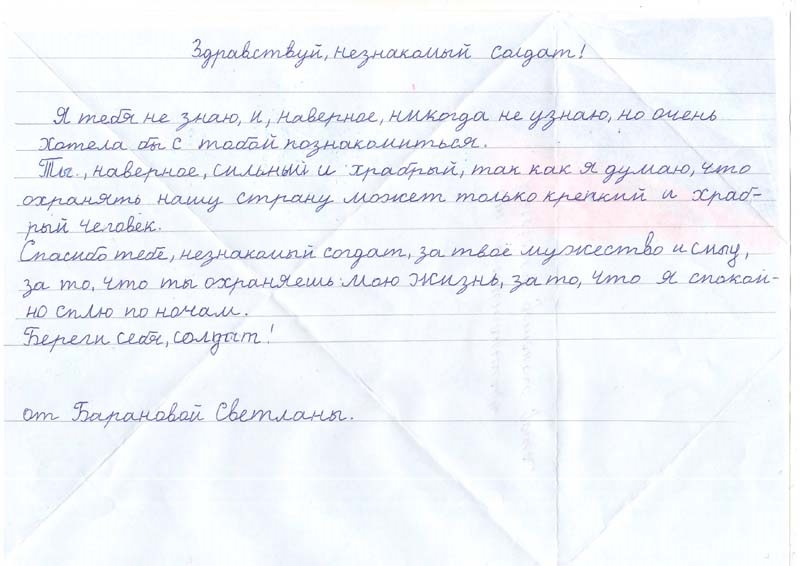 Здравствуй, незнакомый солдат!
Я тебя не знаю, и, наверное, никогда не узнаю, но очень
хотела бы с тобой познакомиться.
Ты, наверное, сильный и храбрый, так как я думаю, что
охранять нашу страну может только крепкий и храб-
рый человек.
Спасибо тебе, незнакомый солдат, за твоё мужество и силу,
за то, что ты охраняешь мою жизнь, за то, что я спокой-
но сплю по ночам.
Береги себя, солдат!
от Барановой Светланы.